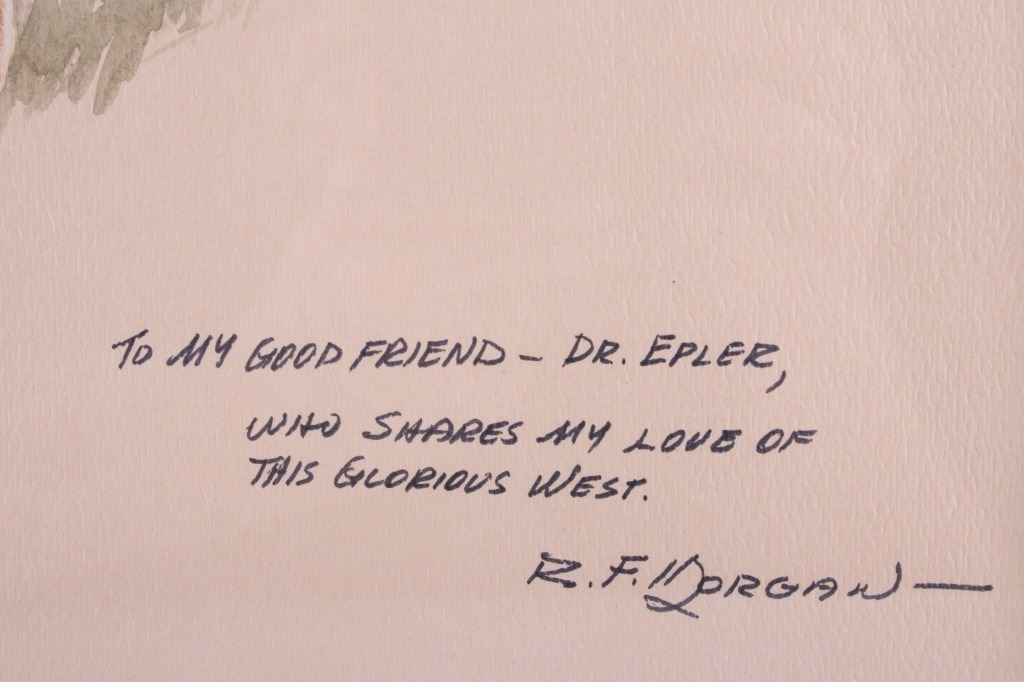 TO MY GOOD FRIEND – DR. EPLER,
WHO SHARES MY LOVE OF
THIS GLORIOUS WEST.
R. F. MORGAN —